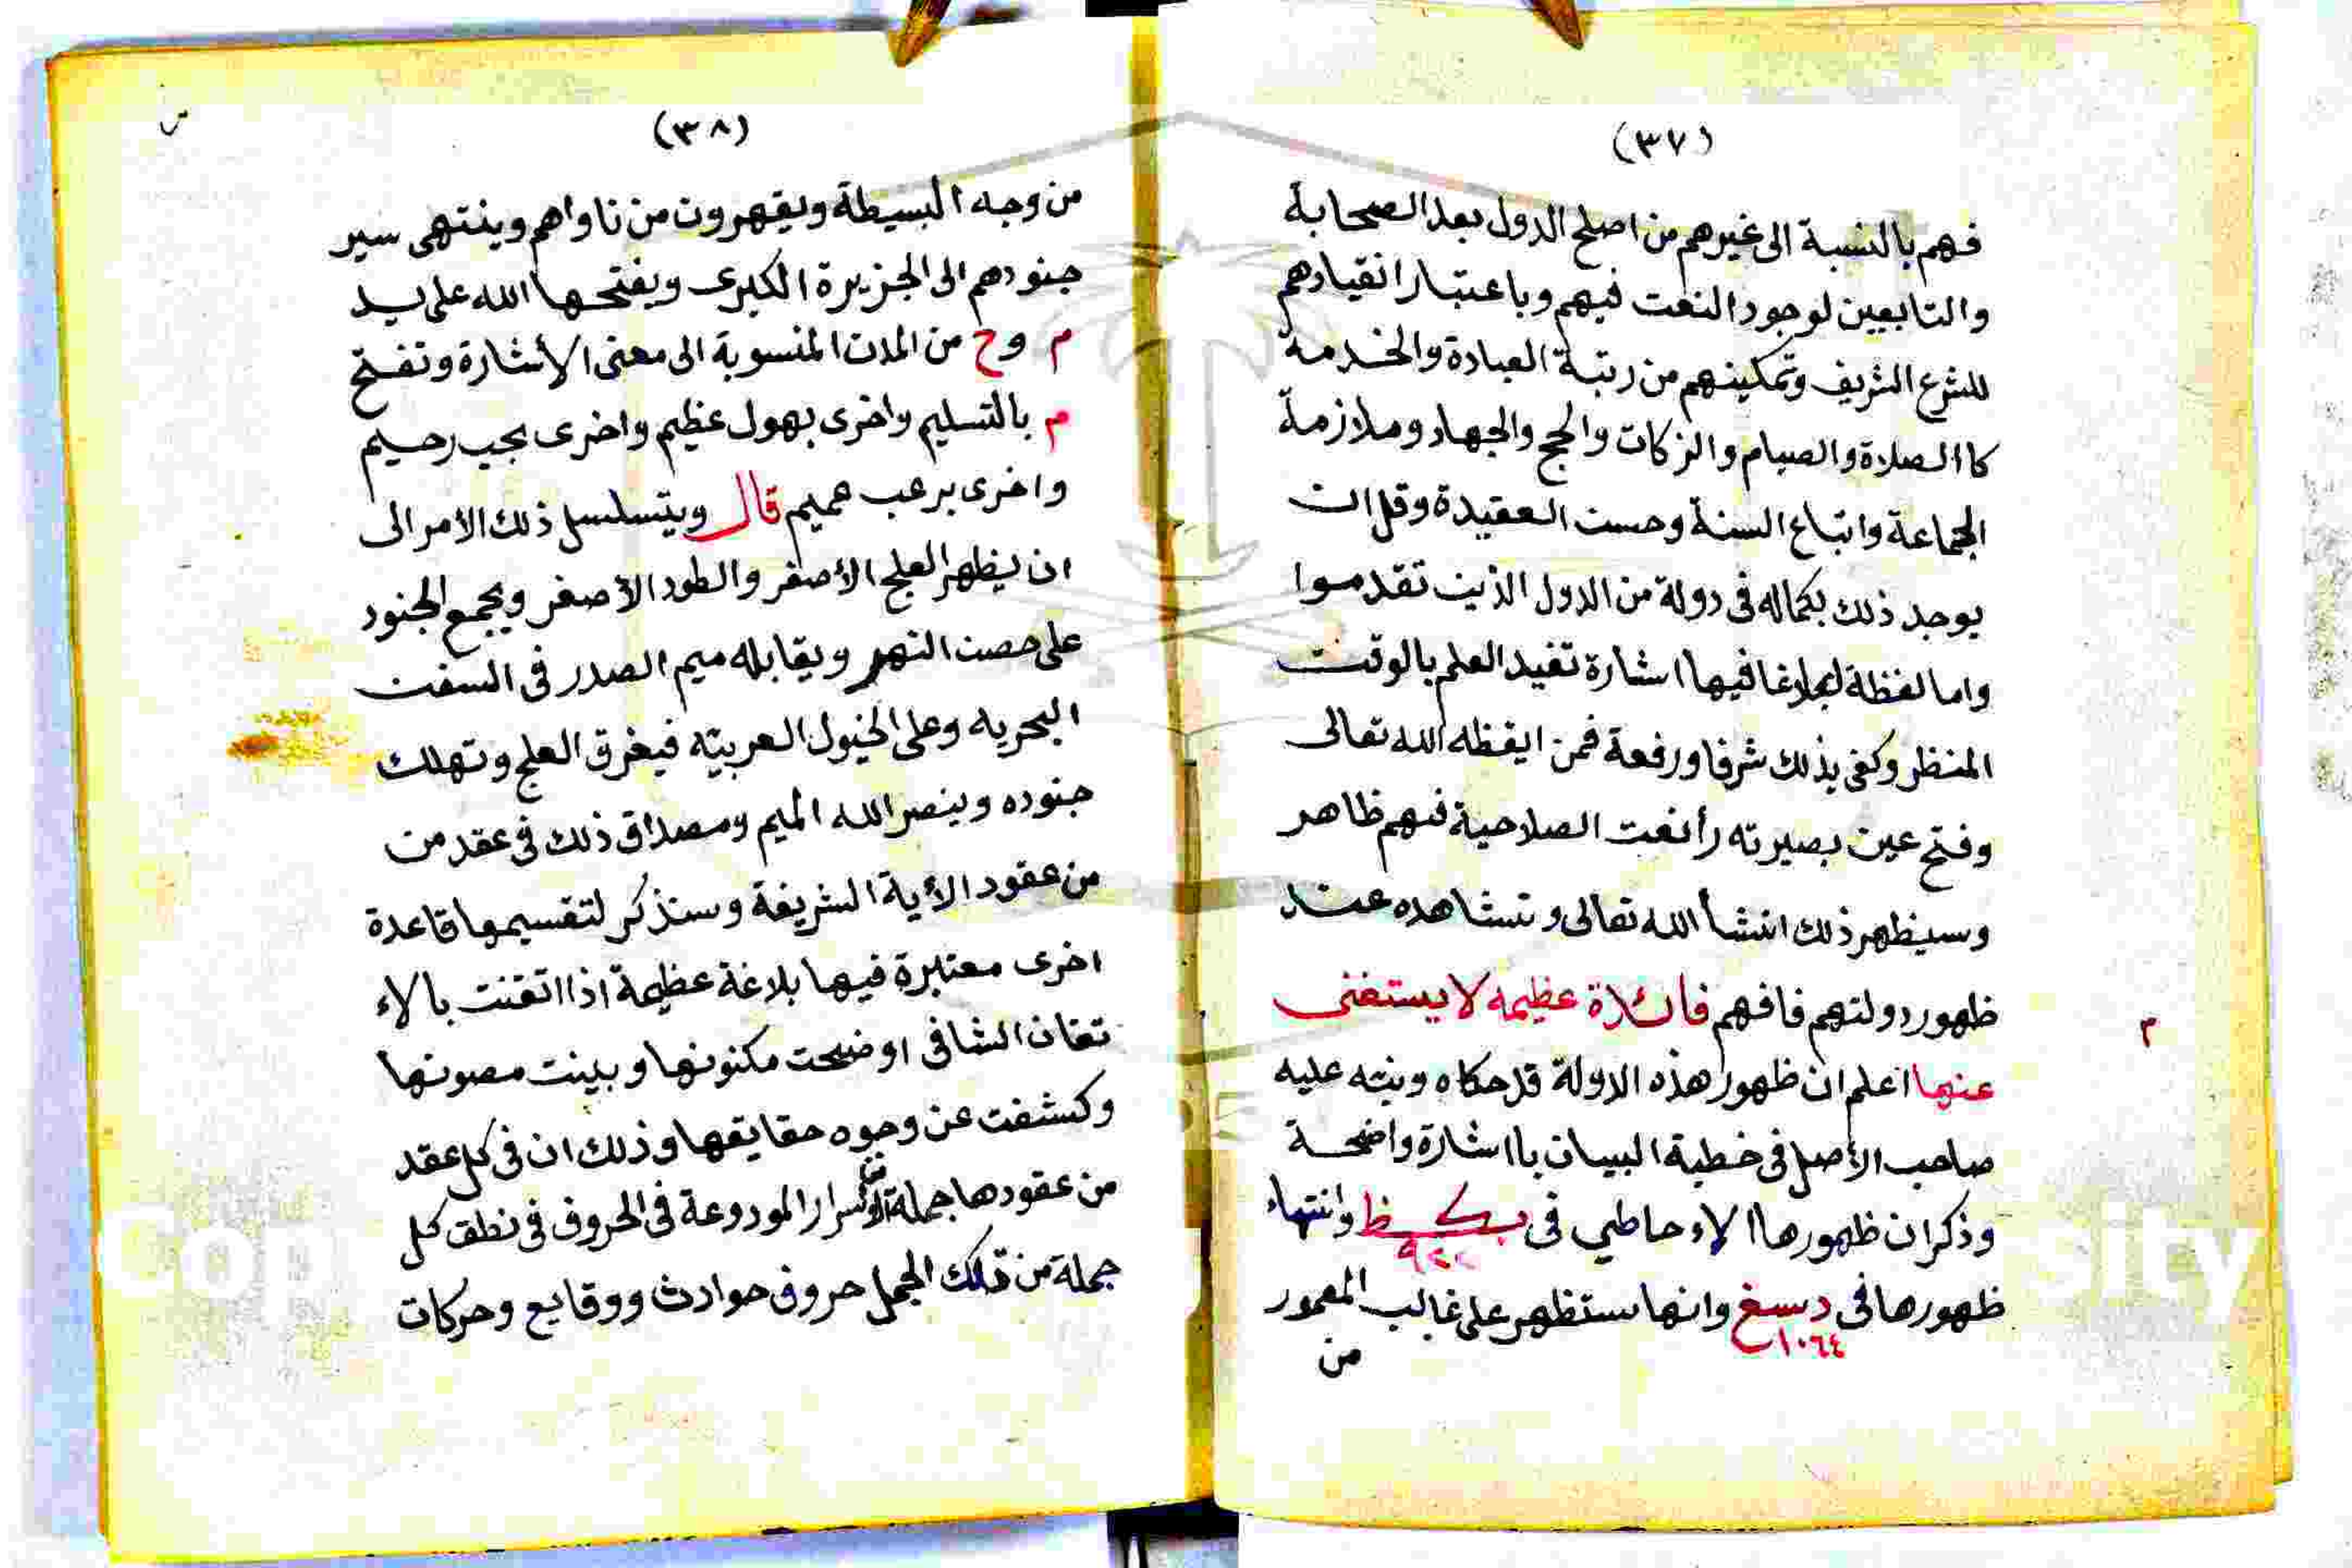 (٣٧)
فهم بالنسبة الى غيرهم من اصلح الدول بعد الصحابة
والتابعين لوجود النعت فيهم وباعتبار انقيادهم
للشرع الشريف وتمكينهم من رتبة العبادة والخدمة
كاالصلاة والصيام والزكات والحج والجهاد وملازمة
الجماعة واتباع السنة وحسن العقيدة وقل ان
يوجد ذلك بكماله فى دولة من الدول الذين تقدموا
واما لفظة فيها اشارة تفيد العلم بالوقت
المنظر وكفى بذلك شرفا ورفعة فمن ايقظه الله تعالى
وفتح عين بصيرته رأ نعت الصلاحية فيهم ظاهر
وسيظهر ذلك انشأ الله تعالى وتشاهده عند
ظهور دولتهم فافهم فائدة عظيمه لا يستغنى
م
عنها اعلم ان ظهور هذه الدولة قد حكاه ونبّه عليه
صاحب الأصل فى خطبة البيان باشارة واضحة
وذكر ان ظهورها الاءحاطي فى بكظ وانتهاء
٩٢٢
ظهورها فى دسغ وانها ستظهر على غالب المعمور
١٠٦٤
من
(٣٨)
من وجه البسيطة ويقهرون من ناواهم وينتهى سير
جنودهم الى الجزيرة الكبرى ويفتحها الله على يد
م وح من المدن المنسوبة الى معنى الأشارة وتفتح
م بالتسليم واخرى بهول عظيم واخرى بجيب رحيم
واخرى برعب عميم قال ويتسلسل ذلك الأمر الى
ان يظهر العلج الأصفر والطود الأصغر ويجمع الجنود
على حصن النهر ويقابله ميم الصدر فى السفن
البحريه وعلى الخيول العربيّه فيغرق العلج وتهلك
جنوده وينصر الله الميم ومصداق ذلك فى عقد من
من عقود الأية الشريفة وسنذكر لتقسيمها قاعدة
اخرى معتبرة فيها بلاغة عظيمة اذا اتقنت بالاء
تقان الشافى اوضحت مكنونها وبينت مصونها
وكشفت عن وجوه حقايقها وذلك ان فى كل عقد
من عقودها جملة من الأسرار المودوعة فى الحروف فى نطق كل
جملة من تلك الجمل حروف حوادث ووقايع وحركات